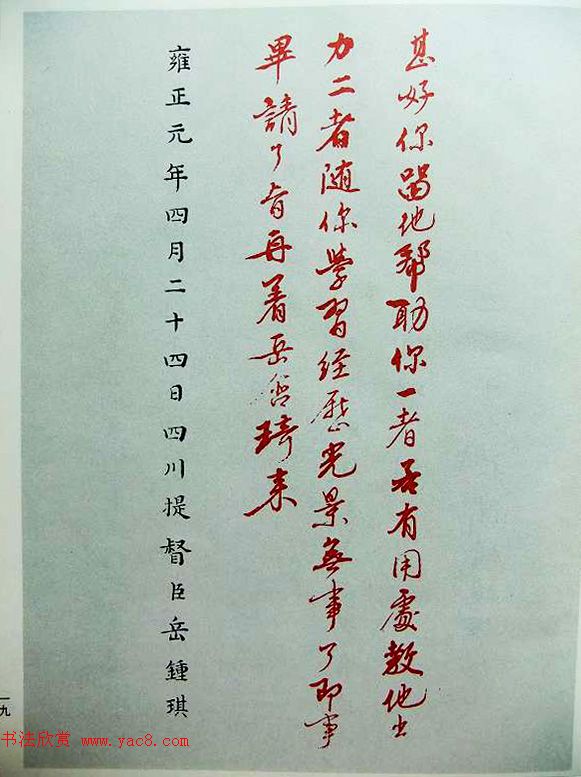 甚好你留他帮助你一者若有用處教他出
力二者随你學習經歷光景無事了即事
畢請了旨再着岳含琦來
雍正元年四月二十四日四川提督臣岳鍾琪
一九
书法欣赏 www.yac8.com